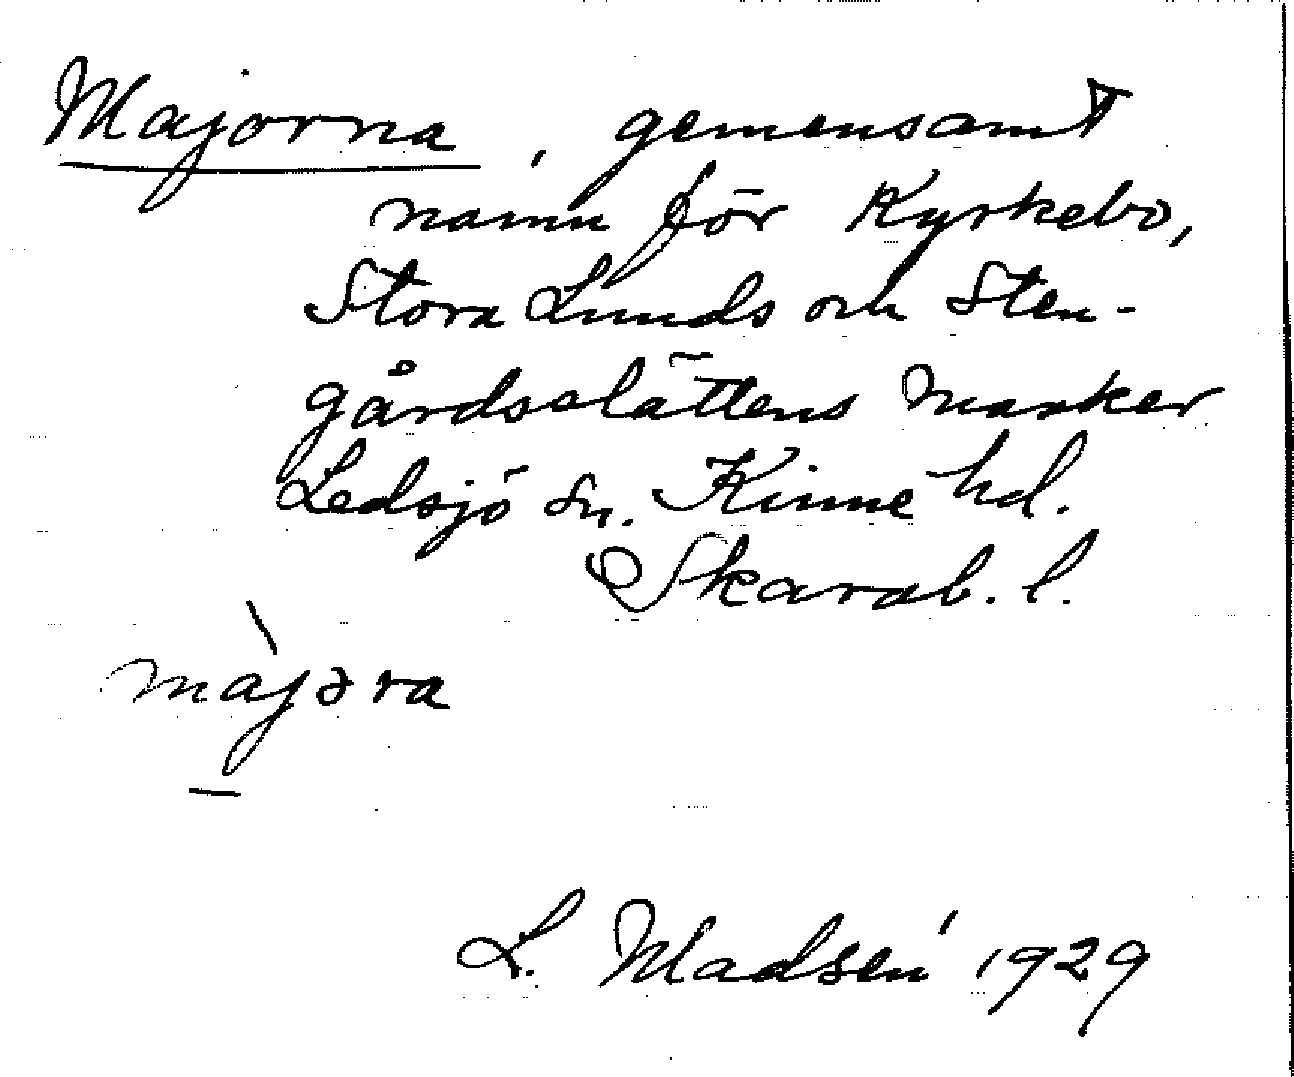 Majorna, gemensamt
namn för Kyrkebo,
Stora Lunds och Sten-
gårdsslättens marker
Ledsjö sn. Kinne hd.
Skarab. l.
màjəra
L. Madsén 1929